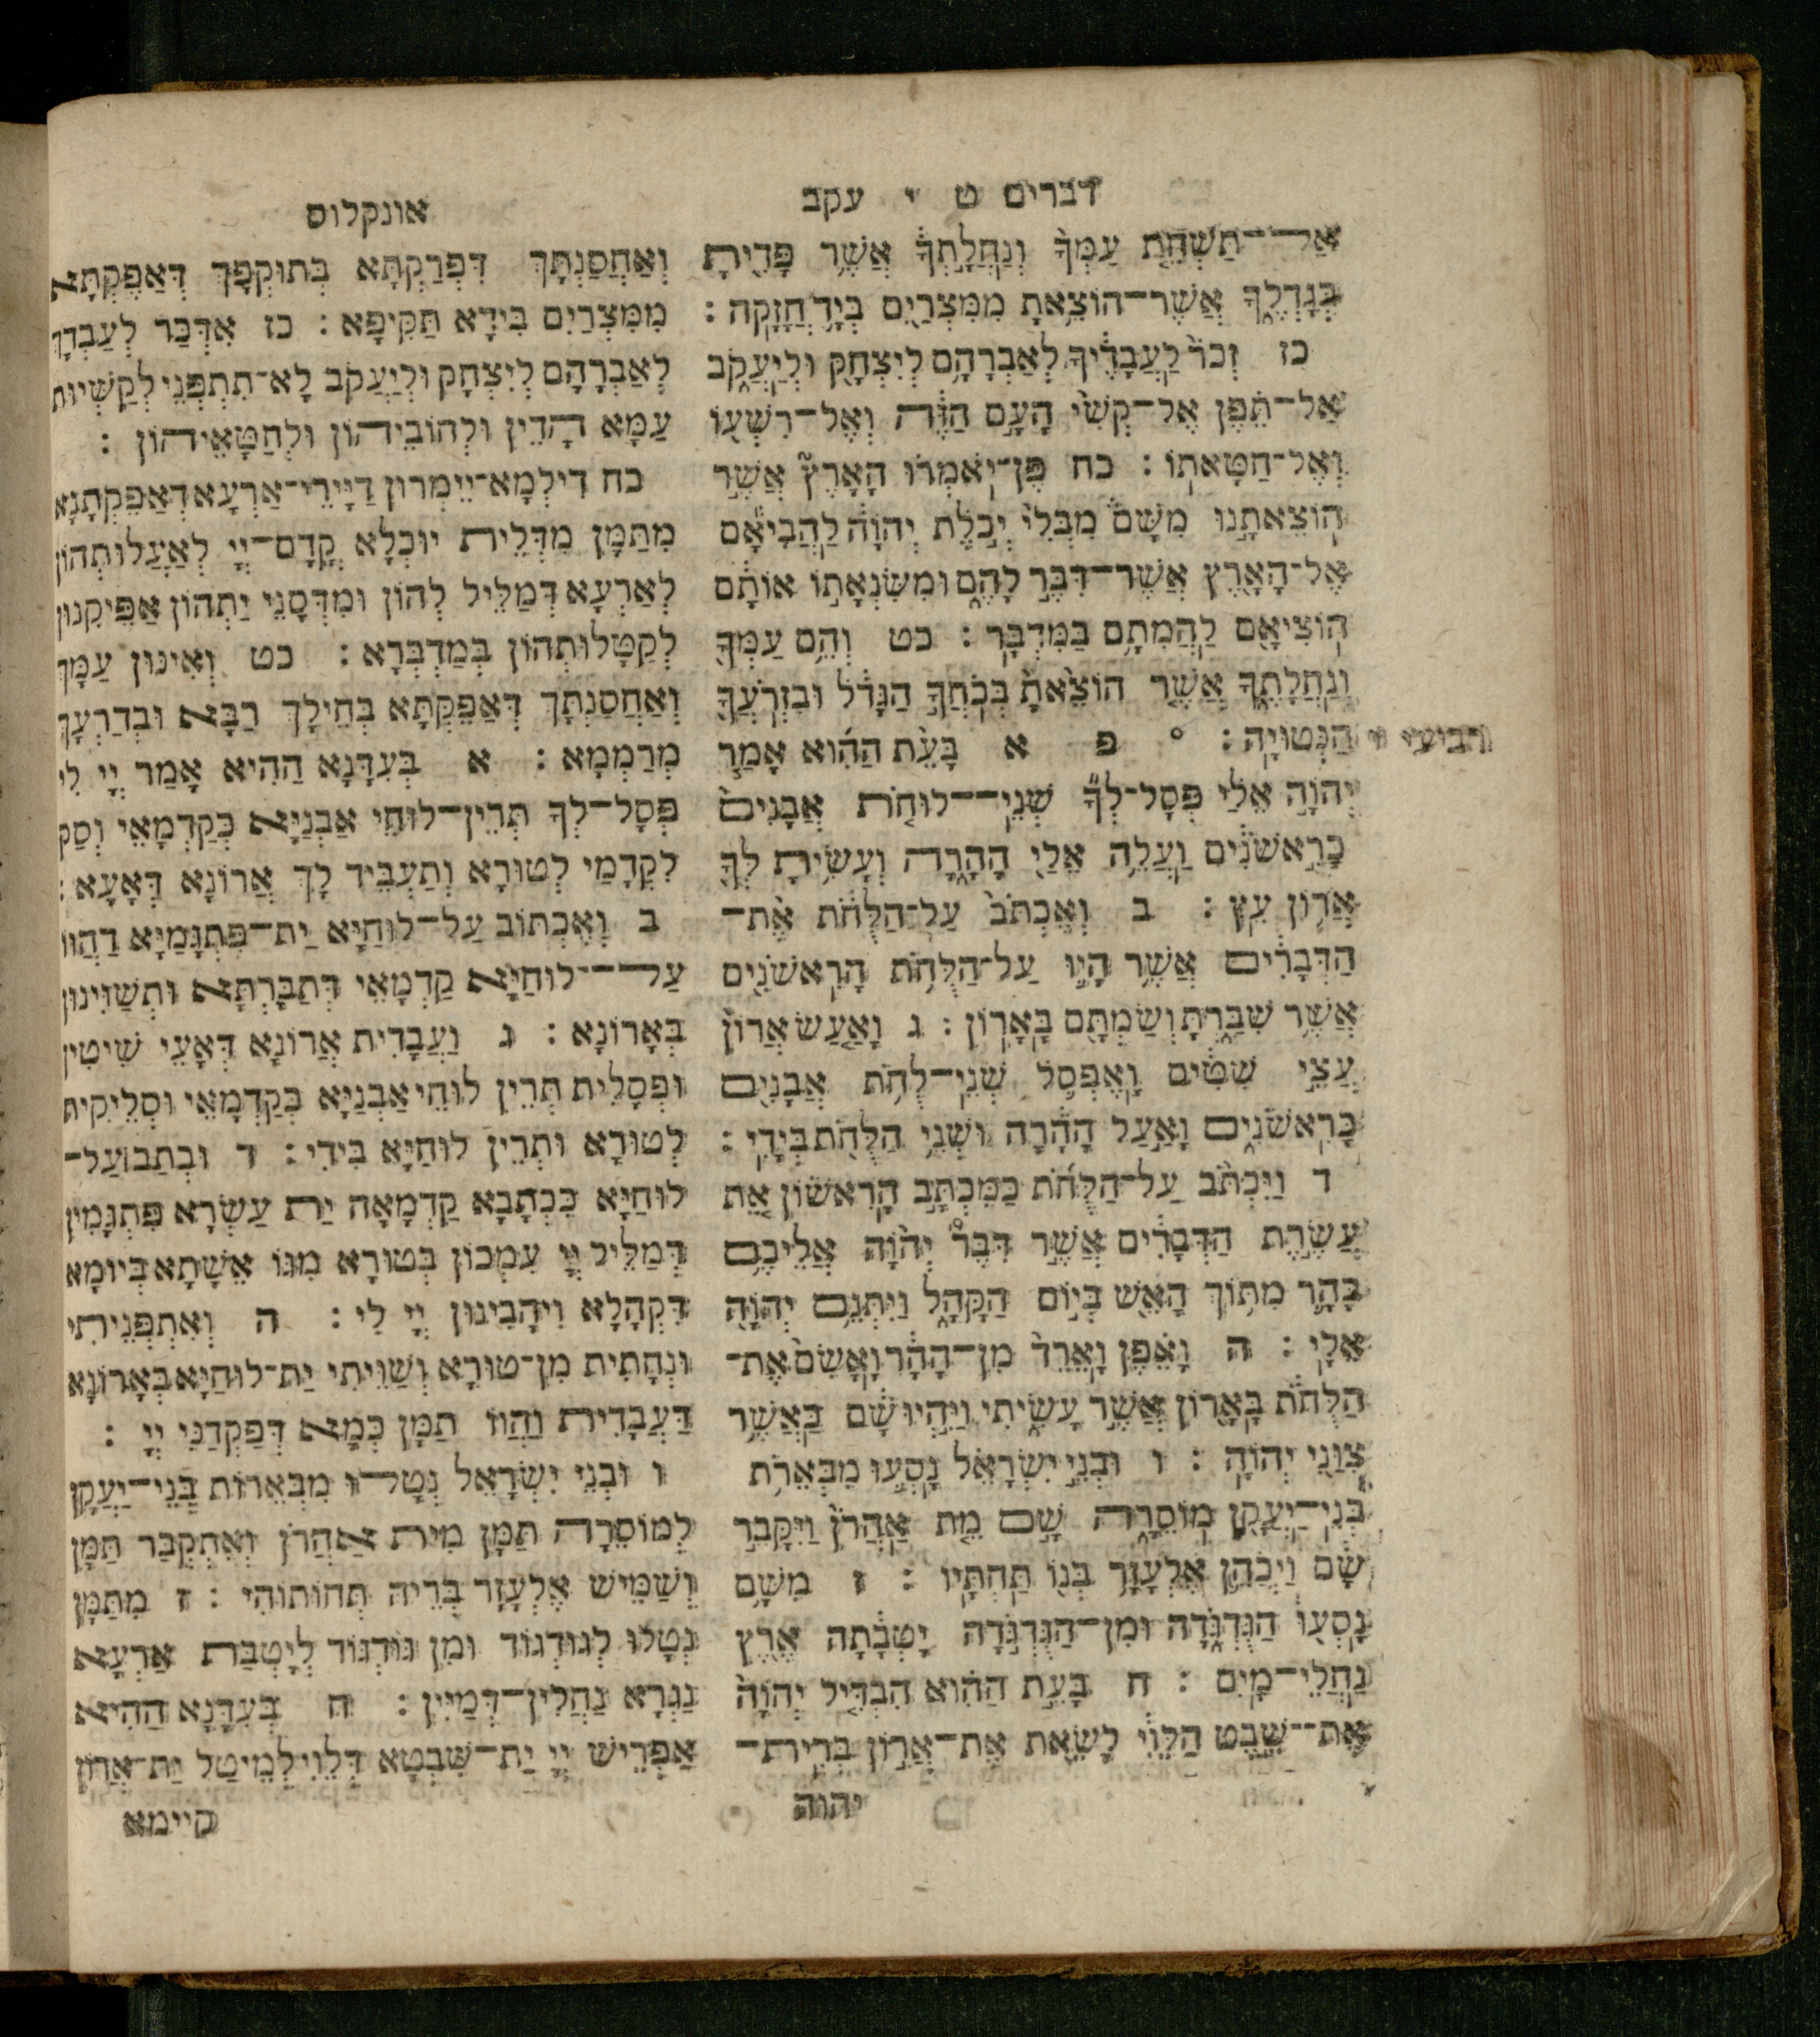 דברים ט י עקב
אַל־־תַּשְׁחֵת עַמְּךָ וְנַחֲלָתְךָ אֲשֶׁר פָּדִיתָ
בְּגָדְלֶךָ אֲשֶׁר־הוֹצֵאתָ מִמִּצְרַיִם בְּיָד חֲזָקָה :
כז זְכֹר לַעֲבָדֶיךָ לְאַבְרָהָם לְיִצְחָק וּלְיַעֲקֹב
אַל־תֵּפֶן אֶל־קְשִׁי הָעָם הַזֶּה וְאֶל־רִשְׁעוֹ
וְאֶל־חַטָּאתוֹ : כח פֶּן־יֹאמְרוּ הָאָרֶץ אֲשֶׁר
הוֹצֵאתָנוּ מִשָּׁם מִבְּלִי יְכֹלֶת יְהוָֹה לַהֲבִיאָם
אֶל־הָאָרֶץ אֲשֶׁר־דִּבֶּר לָהֶם וּמִשִּׂנְאָתוֹ אוֹתָם
הוֹצִיאָם לַהֲמִתָם בַּמִּדְבָּר : כט וְהֵם עַמְּךָ
וְנַחֲלָתֶךָ אֲשֶׁר הוֹצֵאתָ בְּכֹחֲךָ הַגָּדֹל וּבִזְרֹעֲךָ
רביעי הַנְּטוּיָה : ° פ א בָּעֵת הַהִוא אָמַר
יְהוָֹה אֵלַי פְּסָל־לְךָ שְׁנֵי־־לוּחֹת אֲבָנִים
כָּרִאשֹׁנִים וַעֲלֵה אֵלַי הָהָרָה וְעָשִׂיתָ לְּךָ
אֲרוֹן עֵץ : ב וְאֶכְתֹּב עַל־הַלֻּחֹת אֶת־
הַדְּבָרִים אֲשֶׁר הָיוּ עַל־הַלֻּחֹת הָרִאשֹׁנִים
אֲשֶׁר שִׁבַּרְתָּ וְשַׂמְתָּם בָּאָרוֹן : ג וָאַעַשׂ אֲרוֹן
עֲצֵי שִׁטִּים וָאֶפְסֹל שְׁנֵי־לֻחֹת אֲבָנִים
כָּרִאשֹׁנִים וָאַעַל הָהָרָה וּשְׁנֵי הַלֻּחֹת בְּיָדִי :
ד וַיִּכְתֹּב עַל־הַלֻּחֹת כַּמִּכְתָּב הָרִאשׁוֹן אֵת
עֲשֶׂרֶת הַדְּבָרִים אֲשֶׁר דִּבֶּר יְהוָֹה אֲלֵיכֶם
בָּהָר מִתּוֹךְ הָאֵשׁ בְּיוֹם הַקָּהָל וַיִּתְּנֵם יְהוָֹה
אֵלָי : ה וָאֵפֶן וָאֵרֵד מִן־הָהָר וָאָשִׂם אֶת־
הַלֻּחֹת בָּאָרוֹן אֲשֶׁר עָשִׂיתִי וַיִּהְיוּ שָׁם כַּאֲשֶׁר
צִוַּנִי יְהוָֹה : ו וּבְנֵי יִשְׂרָאֵל נָסְעוּ מִבְּאֵרֹת
בְּנֵי־יַעֲקָן מוֹסֵרָה שָׁם מֵת אַהֲרֹן וַיִּקָּבֵר
שָׁם וַיְכַהֵן אֶלְעָזָר בְּנוֹ תַּחְתָּיו : ז מִשָּׁם
נָסְעוּ הַגֻּדְגֹּדָה וּמִן־הַגֻּדְגֹּדָה יָטְבָתָה אֶרֶץ
נַחֲלֵי־מָיִם : ח בָּעֵת הַהִוא הִבְדִּיל יְהוָֹה
אֶת־־שֵׁבֶט הַלֵּוִי לָשֵׂאת אֶת־אֲרוֹן בְּרִית־
יהוה
אונקלוס
וְאַחֲסַנְתָּךְ דִּפְרַקְתָּא בְּתוּקְפָּךְ דְּאַפֵּקְתָּא
מִמִּצְרַיִם בִּידָא תַּקִּיפָא : כז אִדְּכַּר לְעַבְדָךְ
לְאַבְרָהָם לְיִצְחָק וּלְיַעֲקֹב לָא־תִתְפְּנֵי לְקַשְׁיוּת
עַמָּא הָדֵין וּלְחוֹבֵיהוֹן וּלְחַטָּאֵיהוֹן :
כח דִּילְמָא־יֵימְרוּן דַּיָּירֵי־אַרְעָא דְאַפֵּקְתָּנָא
מִתַּמָּן מִדְּלֵית יוּכְלָא קֳדָם־יְיָ לְאַעֲלוּתְהוֹן
לְאַרְעָא דְּמַלִּיל לְהוֹן וּמִדְּסָנֵי יַתְהוֹן אַפֵּיקִנּוּן
לְקַטָּלוּתְהוֹן בְּמַדְבְּרָא : כט וְאִינּוּן עַמָּךְ
וְאַחֲסַנְתָּךְ דְּאַפֵּקְתָּא בְּחֵילָךְ רַבָּא וּבִדְרָעָךְ
מְרַמְמָא : א בְּעִדָּנָא הַהִיא אָמַר יְיָ לִי
פְּסָל־לְךָ תְּרֵין־לוּחֵי אַבְנַיָּא כְּקַדְמָאֵי וְסַק
לִקֳדָמַי לְטוּרָא וְתַעְבֵּיד לָךְ אֲרוֹנָא דְּאָעָא :
ב וְאֶכְתּוֹב עַל־לוּחַיָּא יַת־פִּתְגָּמַיָּא דַהֲווֹ
עַל־־לוּחַיָּא קַדְמָאֵי דְּתַבַּרְתָּא וּתְשַׁוִּינוּן
בְּאָרוֹנָא : ג וַעֲבָדִית אֲרוֹנָא דְּאָעֵי שִׁיטִין
וּפְסָלִית תְּרֵין לוּחֵי אַבְנַיָּא כְּקַדְמָאֵי וּסְלֵיקִית
לְטוּרָא וּתְרֵין לוּחַיָּא בִּידִי : ד וּכְתַב עַל־
לוּחַיָּא כִּכְתָבָא קַדְמָאָה יַת עַשְׂרָא פִּתְגָּמִין
דְּמַלִּיל יְיָ עִמְּכוֹן בְּטוּרָא מִגּוֹ אֶשָּׁתָא בְּיוֹמָא
דִקְהָלָא וִיהָבִינוּן יְיָ לִי : ה וְאִתְפְּנֵיתִי
וּנְחָתִית מִן־טוּרָא וְשַׁוֵּיתִי יַת־לוּחַיָּא בְּאָרוֹנָא
דַּעֲבָדִית וַהֲווֹ תַמָּן כְּמָא דְּפַקְּדַנִי יְיָ :
ו וּבְנֵי יִשְׂרָאֵל נְטָלוּ מִבְּאֵרוֹת בְּנֵי־יַעֲקָן
לְמוֹסֵרָה תַּמָּן מִית אַהֲרֹן וְאִתְקְבַר תַּמָּן
וְשַׁמֵּישׁ אֶלְעָזָר בְּרֵיהּ תְּחוֹתוֹהִי : ז מִתַּמָּן
נְטָלוּ לְגוּדְגוֹד וּמִן גּוּדְגּוֹד לְיָטְבַת אַרְעָא
נַגְרָא נַחֲלִין־דְּמַיִין : ח בְּעִדָּנָא הַהִיא
אַפְרֵישׁ יְיָ יַת־שִׁבְטָא דְּלֵוִי לְמֵיטַל יַת־אֲרוֹן
קיימא